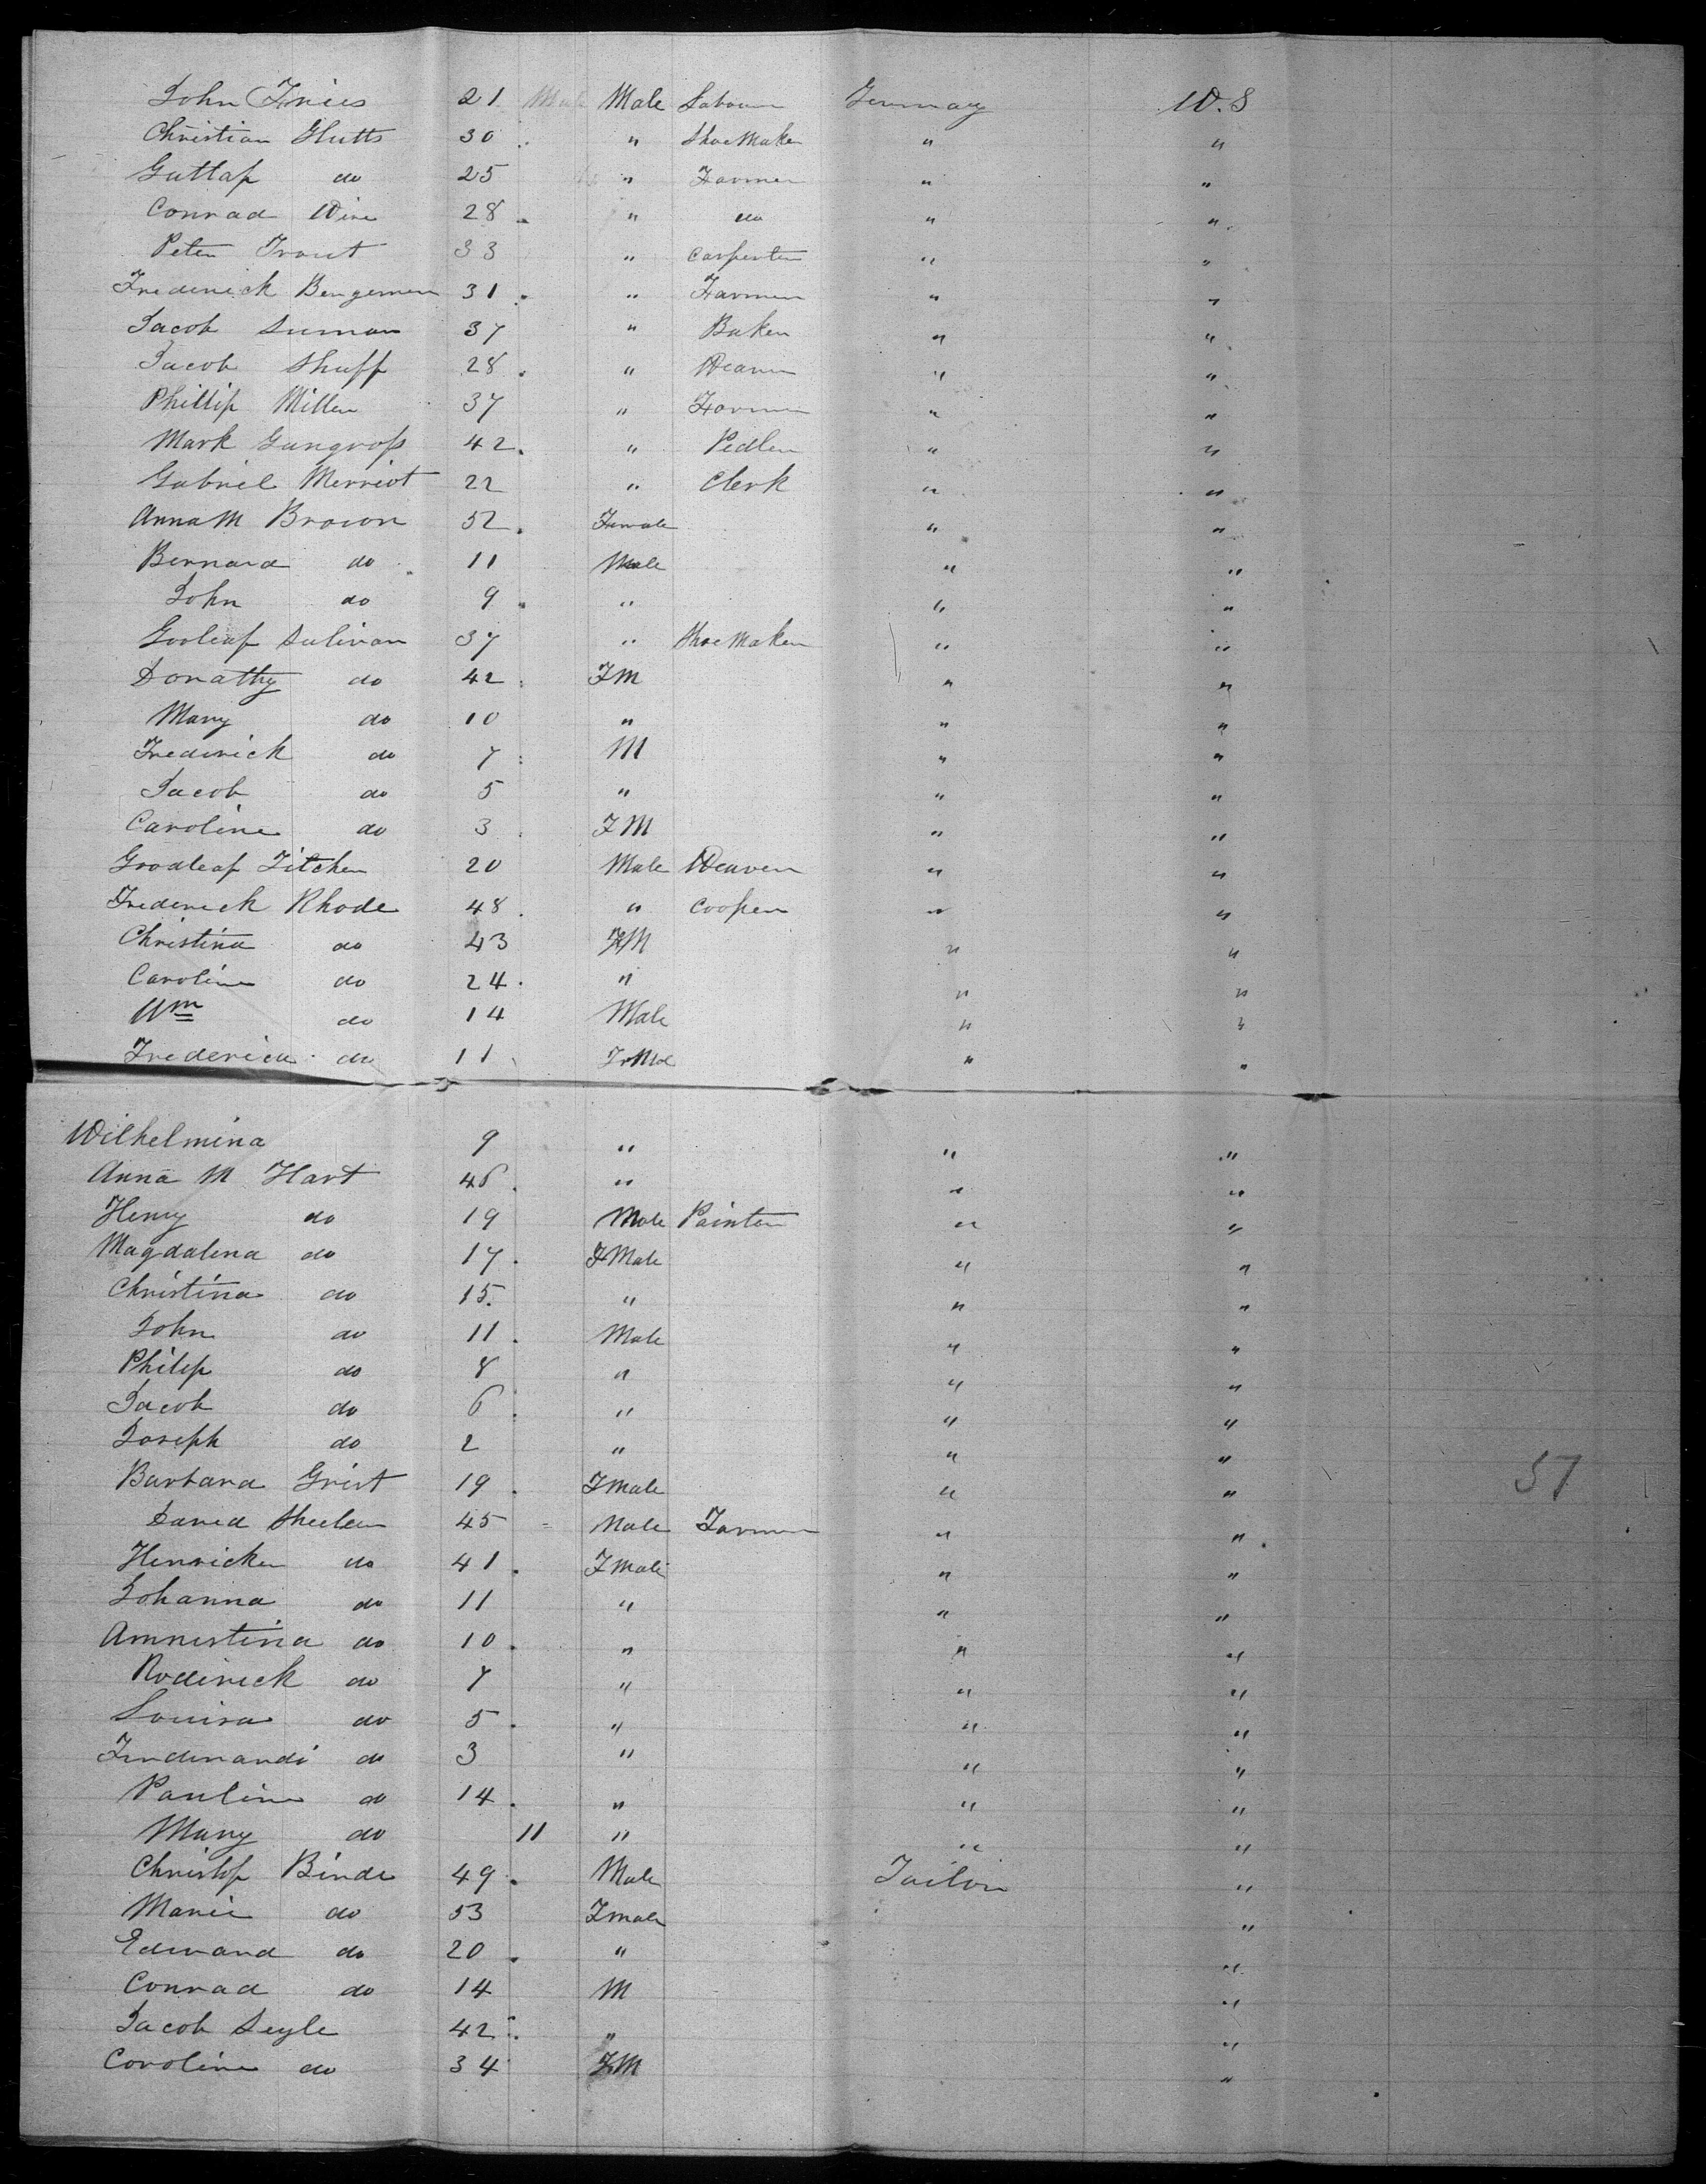 John Fries 21 Male Male Labourer Germany U.S
Christian Glutts 30 " Shoe Maker " "
Guttap do 25 " Farmer " "
Conrad Wire 28 " do " "
Peter Trout 33 " Carpenter " "
Frederick Bengemen 31 " Farmer " "
Jacob Suman 37 " Baker " "
Jacob Shuff 28 " Weaver " "
Phillip Miller 37 " Farmer " "
Mark Gungross 42 " Pedler " "
Gabriel Merriot 22 " Clerk " "
Anna M Brown 52 Female " "
Bernard do 11 Male " "
John do 9 " " "
Gooleaf Sulivan 37 " Shoe Maker " "
Dorathy do 42 FM " "
Mary do 10 " " "
Frederick do 7 M " "
Jacob do 5 " " "
Caroline do 3 FM " "
Goodleaf Fitcher 20 Male Weaver " "
Frederick Rhode 48 " Cooper " "
Christina do 43 FM " "
Caroline do 24 " " "
Wm do 14 Male " "
Frederica do 11 " "
Wilhelmina 9 " " "
Anna M Hart 46 " " "
Henry do 19 Male Painter " "
Magdalena do 17 FMale " "
Christina do 15 " " "
John do 11 Male " "
Philip do 8 " " "
Jacob do 6 " " "
Joseph do 2 " " "
Barbara Grist 19 Fmale " " 57
David Sheeler 45 Male Farmer " "
Henricker do 41 Fmale " "
Johanna do 11 " " "
Amnestina do 10 " " "
Roderick do 7 " " "
Louisa do 5 " " "
Ferdinandi do 3 " " "
Pauline do 14 " " "
Mary do 11 " " "
Christop Binde 49 Male Tailor "
Marie do 53 Fmale "
Edward do 20 " "
Conrad do 14 M "
Jacob Seyle 42 " "
Caroline do 34 FM "